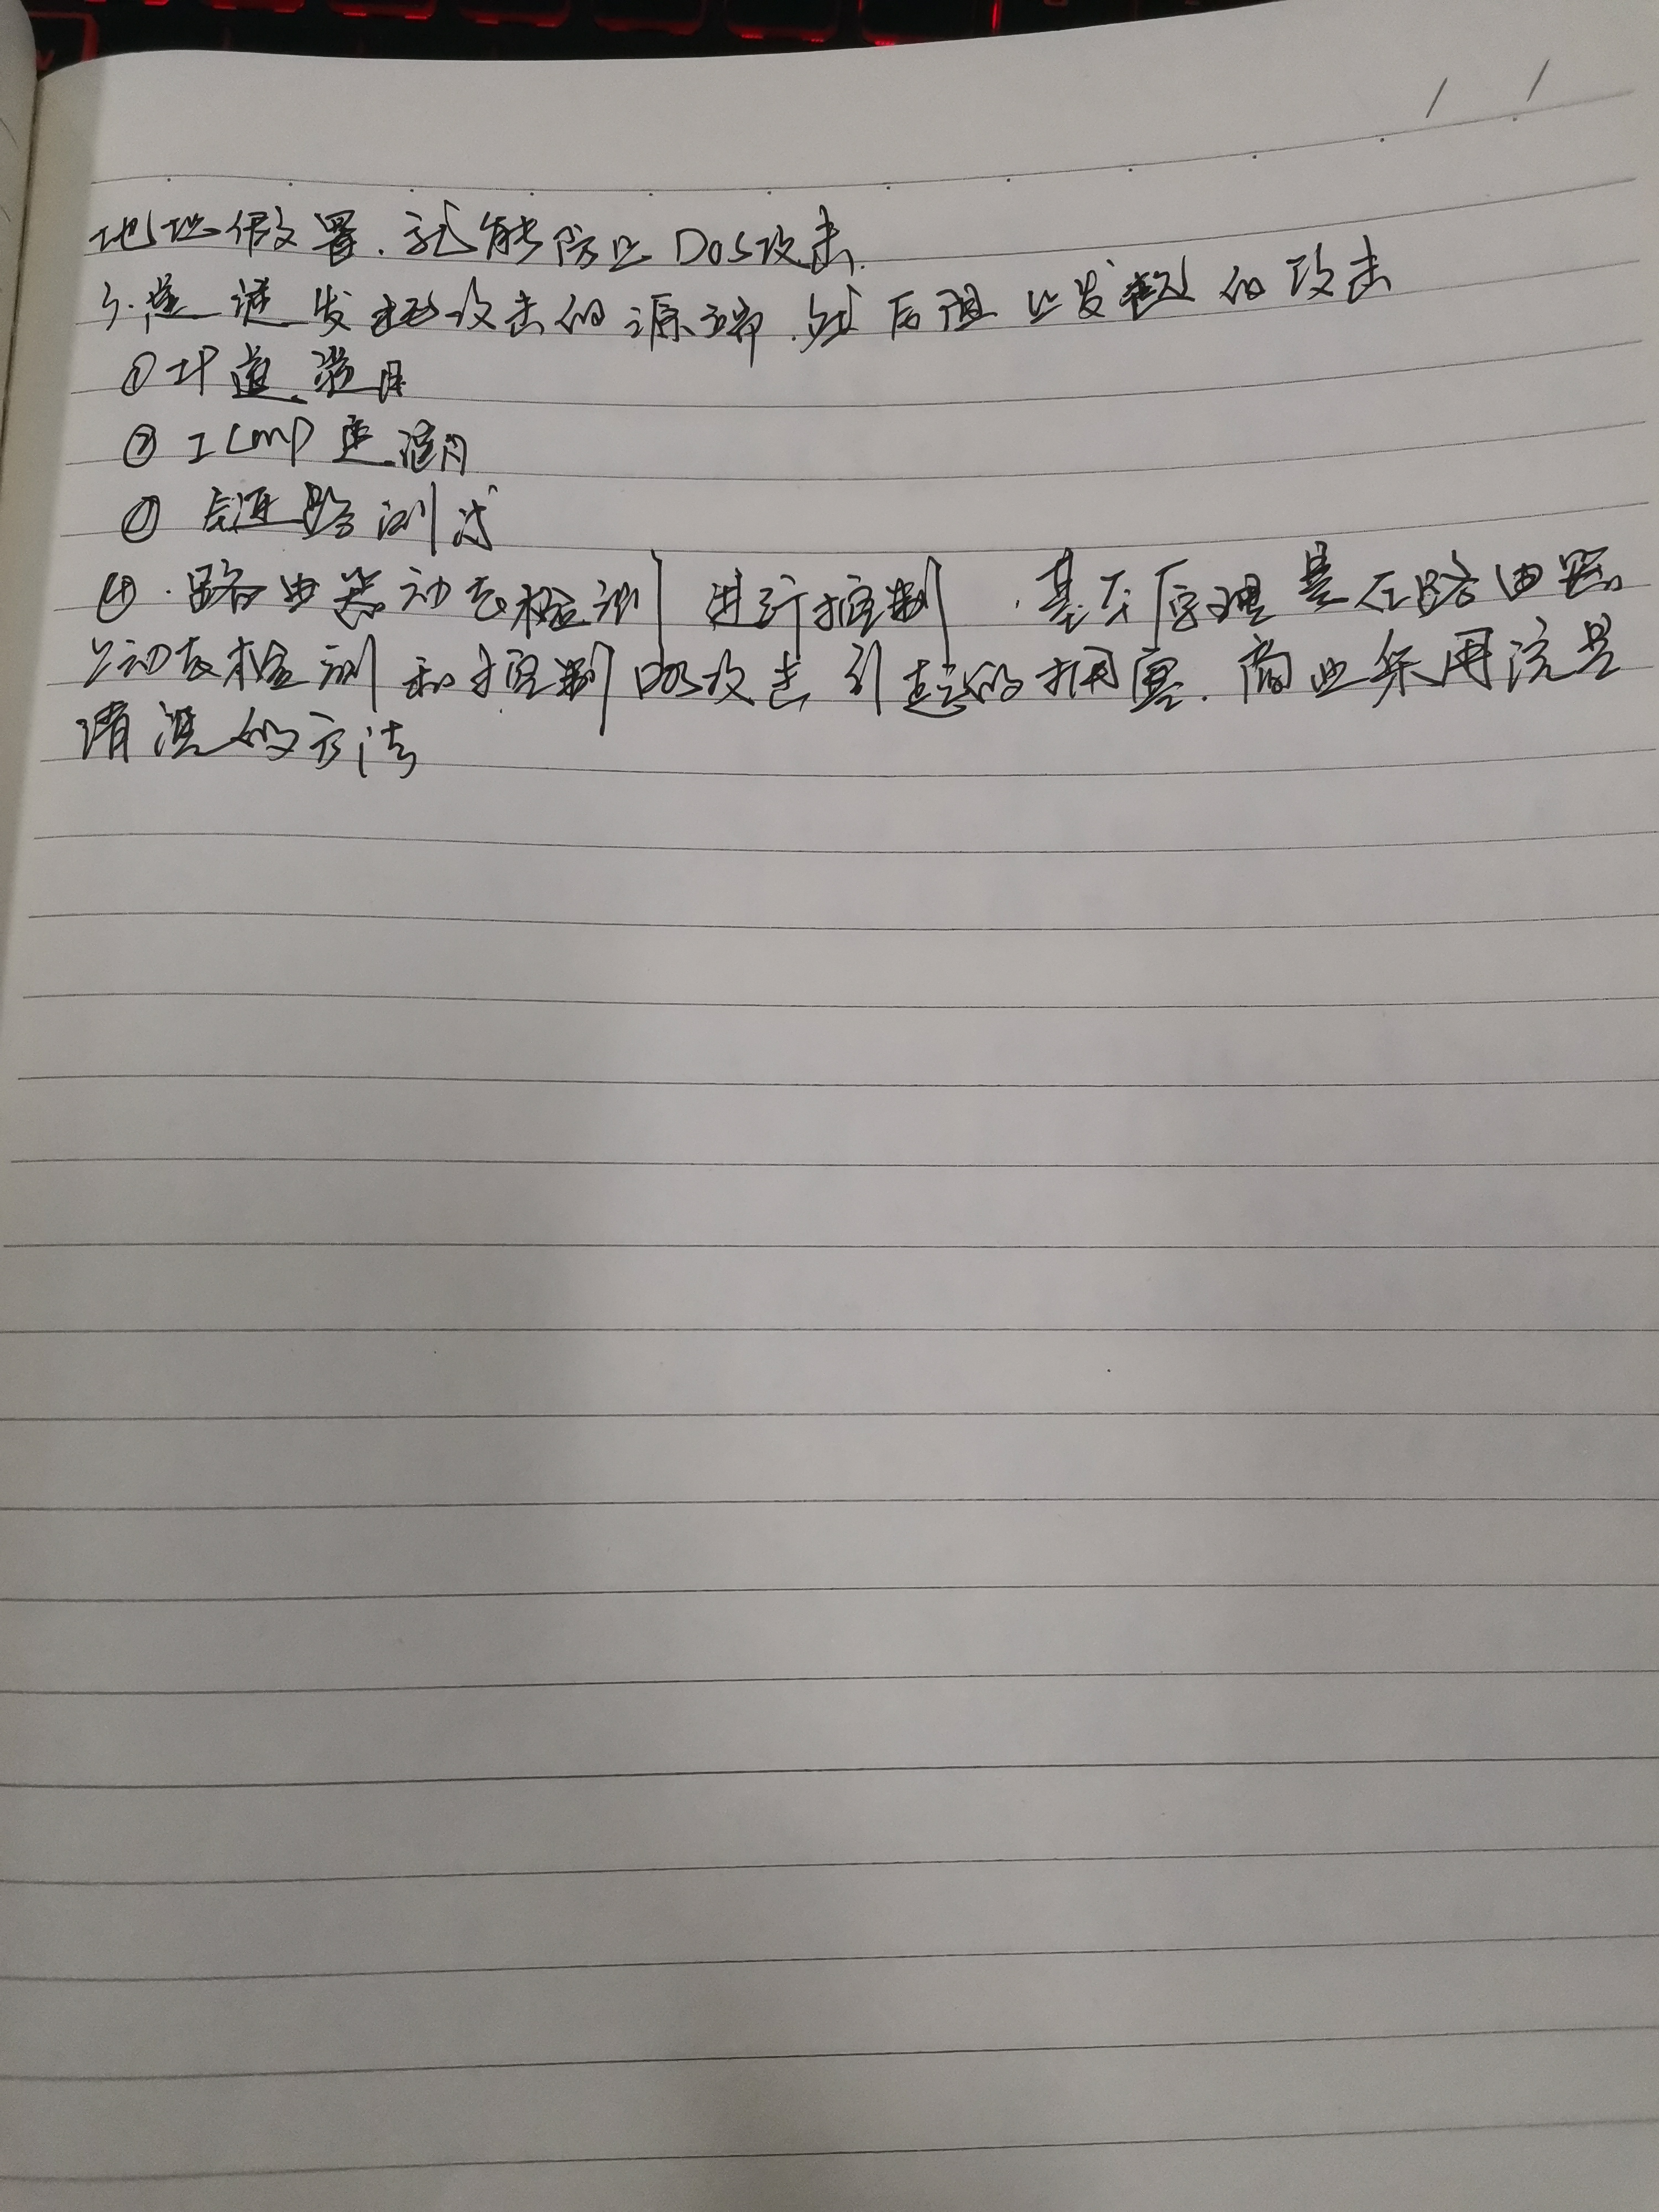 地址假冒.就能防止DOS攻击.
3.追溯发起攻击的源端.然后阻止发起的攻击
①IP追溯
②ICMP追溯
③链路测试
④.路由器动态检测进行控制.基本原理是在路由器
上动态检测和控制DOS攻击引起的拥塞.商业采用流量
清洗的方法